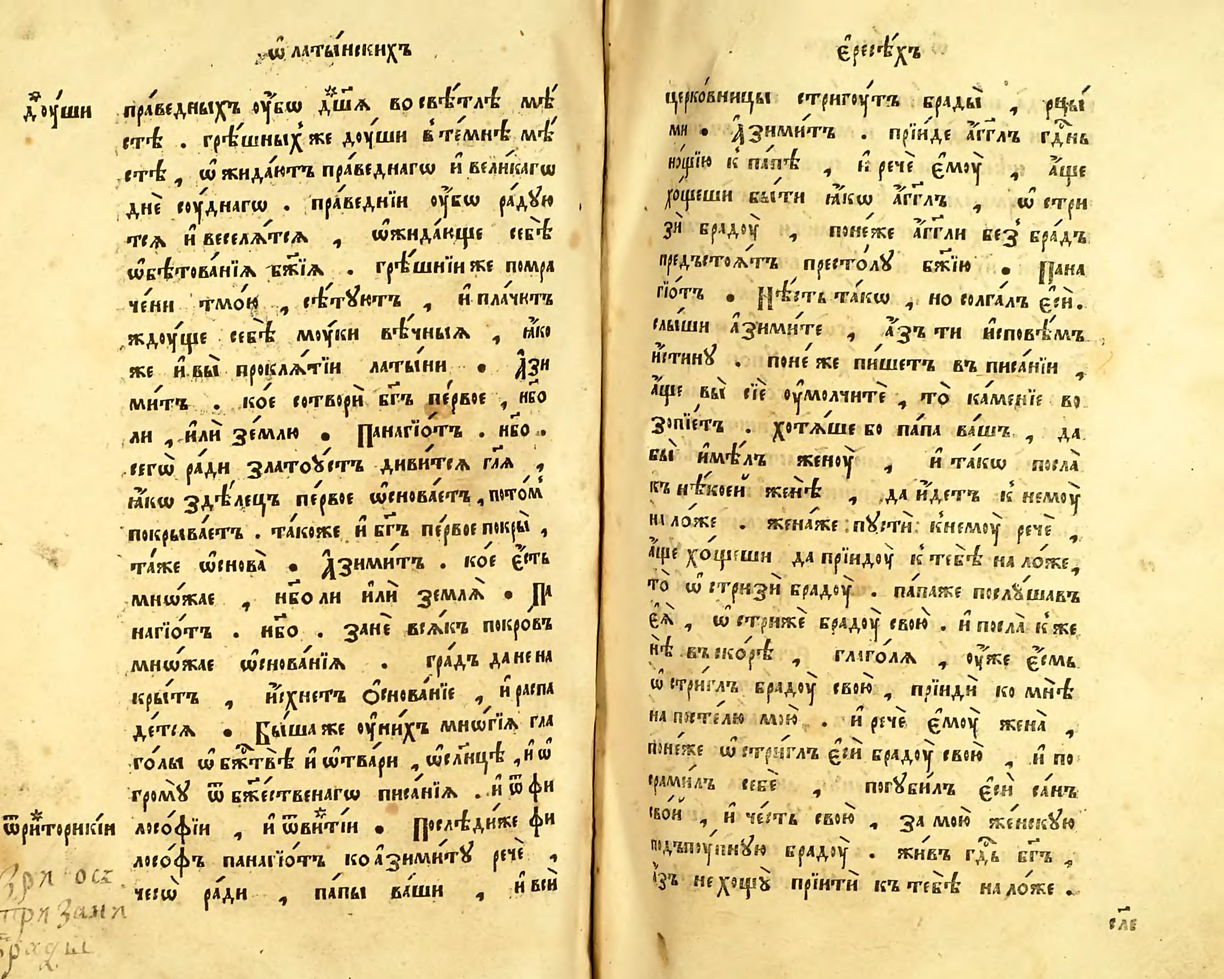 ѡ҆ латы́нскихъ
дꙋ́ши
пра́ведныхъ ᲂу҆́бѡ дш҃ѧ во свѣ́тлѣ мѣ́
стѣ . грѣ́шныхже дꙋ́ши в те́мнѣ мѣ́
стѣ , ѡ҆жида́ютъ пра́веднагѡ и҆ вели́кагѡ
днѐ сꙋ́днагѡ . пра́веднїи ᲂу҆́бѡ ра́дую
тсѧ и҆ веселѧ́тсѧ , ѡ҆жида́юще себѣ̀
ѡ҆бѣтова́нїѧ бж҃їѧ . грѣ́шнїиже помра
че́ни тмо́ю , сѣ́тꙋютъ , и҆ пла́чютъ
ждꙋ́ще себѣ̀ мꙋ́ки вѣ́чныѧ , ꙗ҆́ко
же и҆ вы̀ проклѧ́тїи латы́ни . А҆зи
ми́тъ . ко́е сотворѝ бг҃ъ пе́рвое , нб҃о
ли , и҆лѝ зе́млю . Панагїѡ́тъ . нб҃о .
сегѡ̀ ра́ди златоꙋ́стъ диви́тсѧ гл҃ѧ ,
ꙗ҆́кѡ здѣ́лецъ пе́рвое ѡ҆снова́етъ , пото́м
покрыва́етъ . та́коже и҆ бг҃ъ пе́рвое покры̀ ,
та́же ѡ҆снова̀ . А҆зими́тъ . ко́е є҆́сть
мнѡ́жае , нб҃о ли и҆лѝ землѧ̀ . Па
нагїѡ́тъ . нб҃о . занѐ всѧ́къ покро́въ
мнѡ́жае ѡ҆снова́нїѧ . гра́дъ да не на
кры́тъ , и҆́схнетъ ѻ҆снова́нїе , и҆ распа
де́тсѧ . Бы́ша же ᲂу҆ ни́хъ мнѡ́гїѧ гла
го́лы ѡ҆ бж҃твѣ̀ и҆ ѡ҆ тва́ри , ѡ҆ сл҃нцѣ , и҆ ѡ҆
гро́мꙋ ѿ бж҃е́ственагѡ писа́нїѧ . и҆ ѿ фи
лосо́фїи , и҆ ѿ ви́тїи . Послѣ́диже фи
ѿ ри́торикїи
лосо́фъ панагїѡ́тъ ко а҆зими́тꙋ речѐ ,
чесѡ̀ ра́ди , па́пы ва́ши , и҆ всѝ
Зри ѡсъ
трizани
брады
є҆́ресѣхъ
церко́вницы стригꙋ́тъ брады̀ , рцы́
ми . А҆зими́тъ . прїи́де а҆́гг҃лъ гд҃нь
но́щїю к па́пѣ , и҆ речѐ є҆мꙋ̀ , а҆́ще
хо́щеши бы́ти ꙗ҆́кѡ а҆́гг҃лъ , ѡ҆стри
зѝ брадꙋ̀ , поне́же а҆́гг҃ли без̾ бра́дъ
предъстоѧ́тъ престо́лꙋ бж҃їю . Пана
гїѡ́тъ . Нѣ́сть та́кѡ , но солга́лъ є҆сѝ .
слы́ши а҆зими́те , а҆́зъ ти и҆сповѣ́мъ
и҆́стинꙋ . поне́же пи́шетъ въ писа́нїи ,
а҆́ще вы̀ сїѐ ᲂу҆молчитѐ , то̀ ка́менїе во
зопїе́тъ . хотѧ́ше бо па́па ва́шъ , да
бы̀ и҆мѣ́лъ женꙋ̀ , и҆ та́кѡ посла̀
къ нѣ́коей женѣ̀ , да и҆́детъ к немꙋ̀
на ло́же . жена́же пꙋстѝ к немꙋ̀ речѐ ,
а҆́ще хо́щеши да прїи́дꙋ к тебѣ̀ на ло́же ,
то̀ ѡ҆стризѝ брадꙋ̀ . па́паже послꙋ́шавъ
є҆ѧ̀ , ѡ҆стрижѐ брадꙋ̀ свою̀ . и҆ посла̀ к же
нѣ̀ въ ско́рѣ , глаго́лѧ , ᲂу҆́же є҆́смь
ѡ҆стри́глъ брадꙋ̀ свою̀ , прїидѝ ко мнѣ̀
на постє́лю мою̀ . и҆ речѐ є҆мꙋ̀ жена̀ ,
поне́же ѡ҆стри́глъ є҆сѝ брадꙋ̀ свою̀ , и҆ по
срами́лъ себѐ , погꙋби́лъ є҆сѝ са́нъ
сво́й , и҆ че́сть свою̀ , за мою̀ же́нскꙋю
подъпꙋ́пнꙋю брадꙋ̀ . жи́въ гд҃ь бг҃ъ ,
а҆́зъ не хощꙋ̀ прїитѝ къ тебѣ̀ на ло́же .
сл҃е